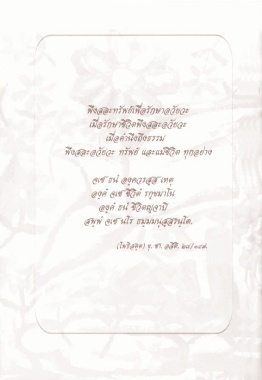 พึงสละทรัพย์เพื่อรักษาอวัยวะ
เมื่อรักษาชีวิตพึงสละอวัยวะ
เมื่อคำนึงถึงธรรม
พึงสละอวัยวะ ทรัพย์ และแม้ชีวิต ทุกอย่าง
จเช ธนํ องฺควรสฺส เหตุ
องฺคํ จเช ชีวิตํ รกฺขมาโน
องฺคํ ธนํ ชีวิตญฺจาปิ
สพฺพํ จเช นโร ธมฺมมนุสฺสรนฺโต.
(โพธิสตฺต) ขุ. ชา. อสีติ. ๒๘/๑๔๗.